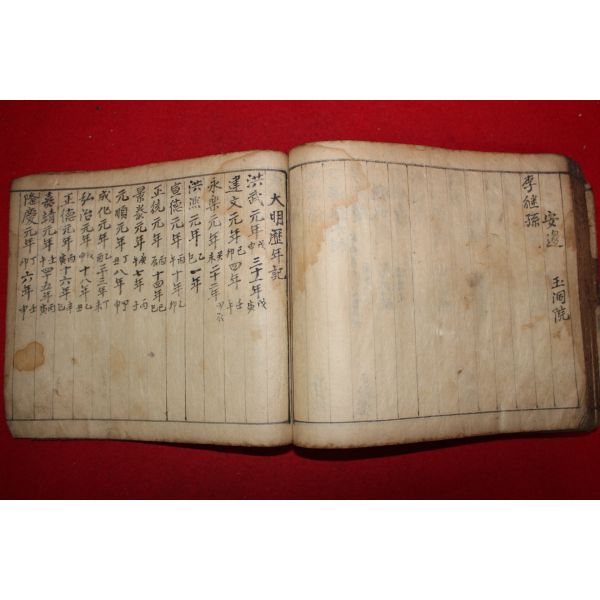 安邊 玉洞院
李継孫
大明歷年記
洪武元年戊申三十一年戊寅
建文元年己卯四年壬午
永樂元年癸未二十二年甲辰
洪熙元年乙巳一年
宣德元年丙午十年乙卯
正統元年丙辰十四年己巳
景泰元年庚午七年丙子
元順元年丁丑八年甲申
成化元年乙酉二十三年丁未
弘治元年戊申十八年乙丑
正德元年丙寅十六年辛巳
嘉靖元年壬午四十五年丙寅
隆慶元年丁卯六年壬申